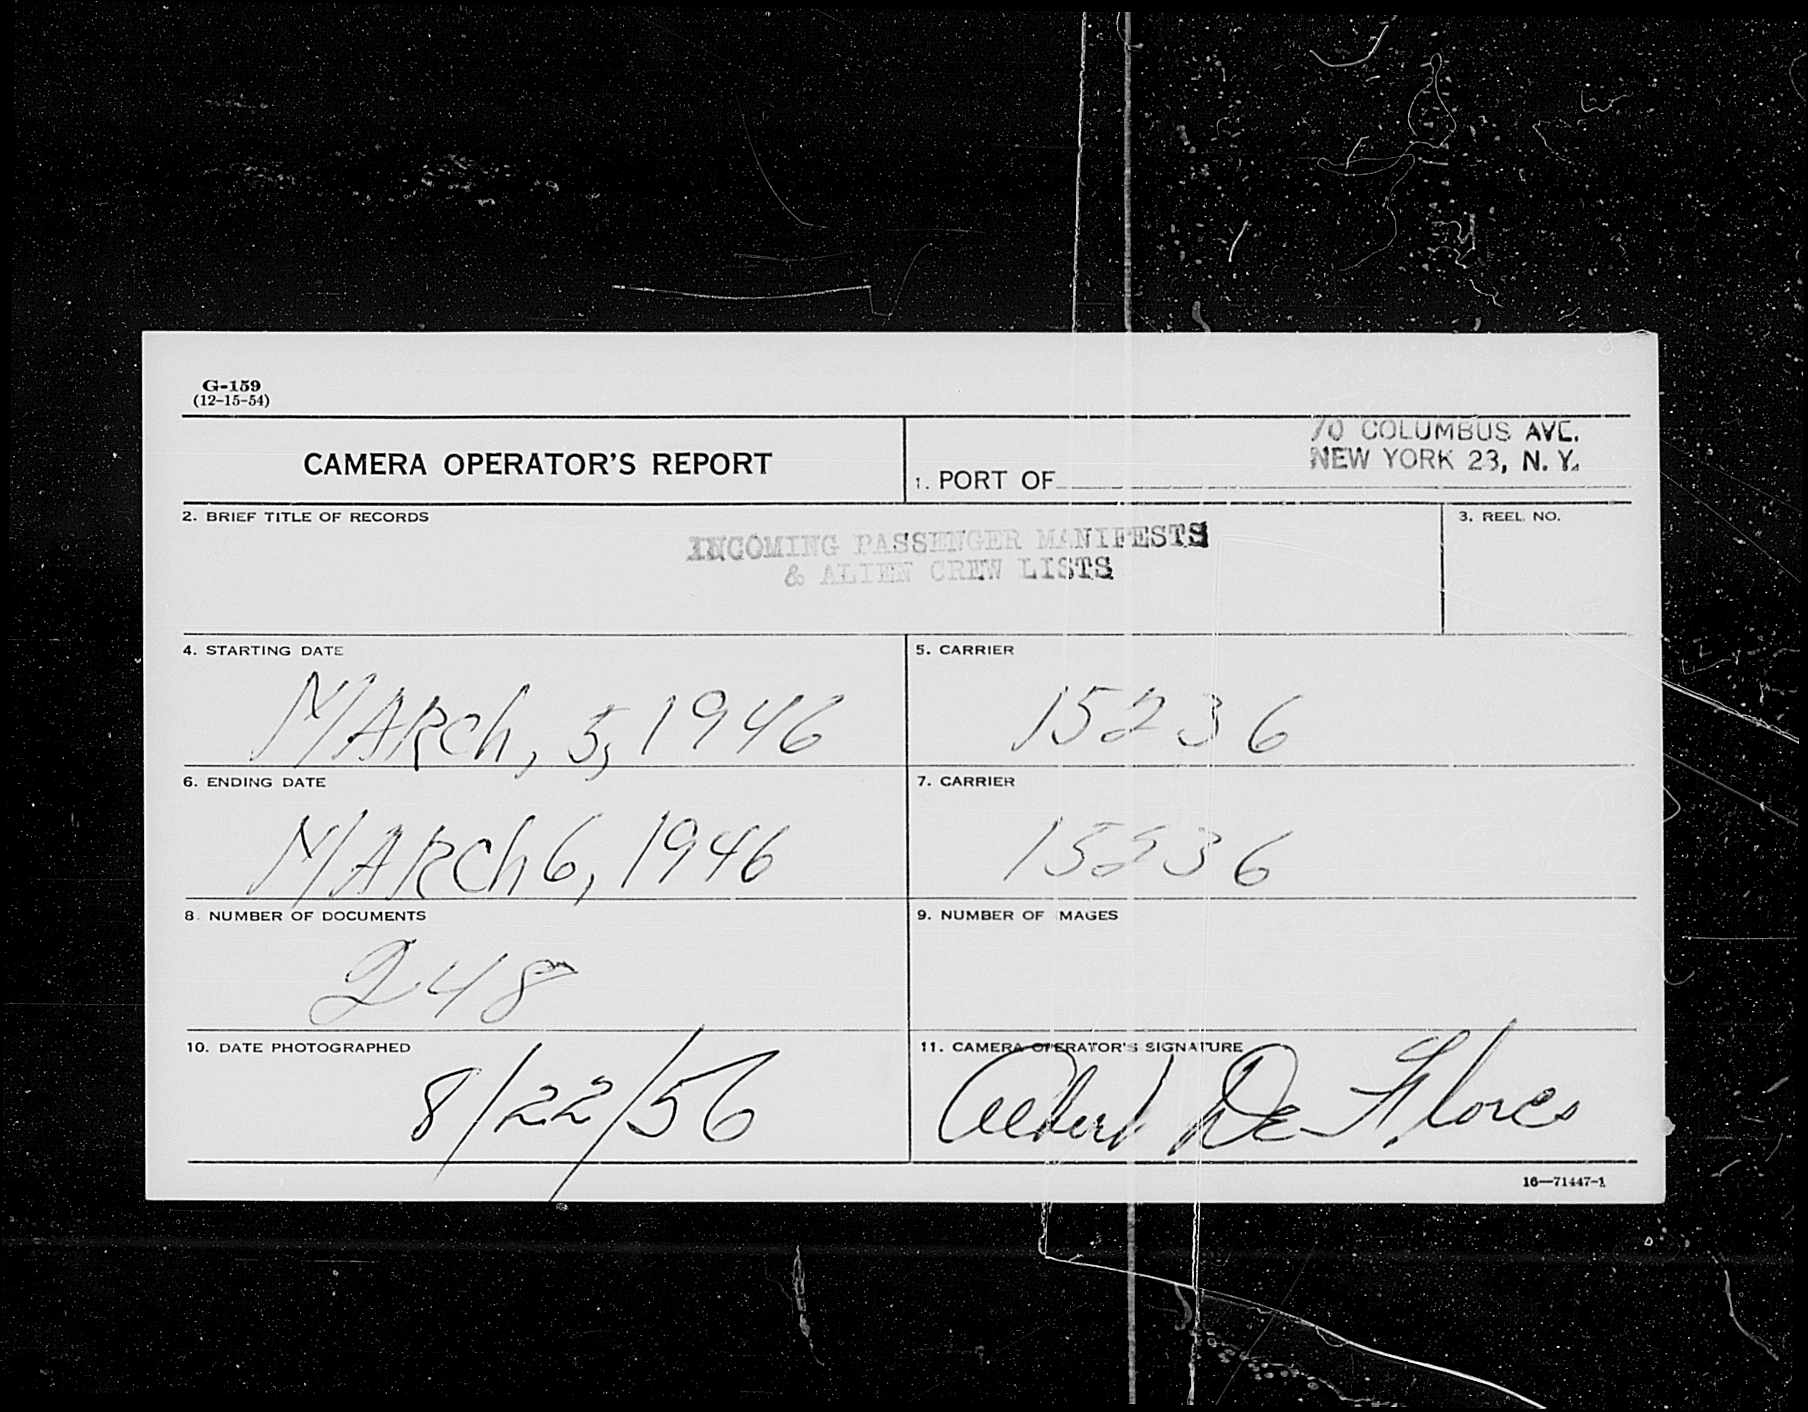 G-159
(12-15-54)
CAMERA OPERATOR'S REPORT
70 COLUMBUS AVE.
NEW YORK 23, N. Y.
1. PORT OF
2. BRIEF TITLE OF RECORDS
3. REEL NO.
INCOMING PASSENGER MANIFESTS
& ALIEN CREW LISTS
4. STARTING DATE
5. CARRIER
MARch, 5, 1946
15236
6. ENDING DATE
7. CARRIER
MARCh 6, 1946
15236
8. NUMBER OF DOCUMENTS
9. NUMBER OF IMAGES
248
10. DATE PHOTOGRAPHED
11. CAMERA OPERATOR'S SIGNATURE
8/22/56
Albert De Flores
16—71447-1